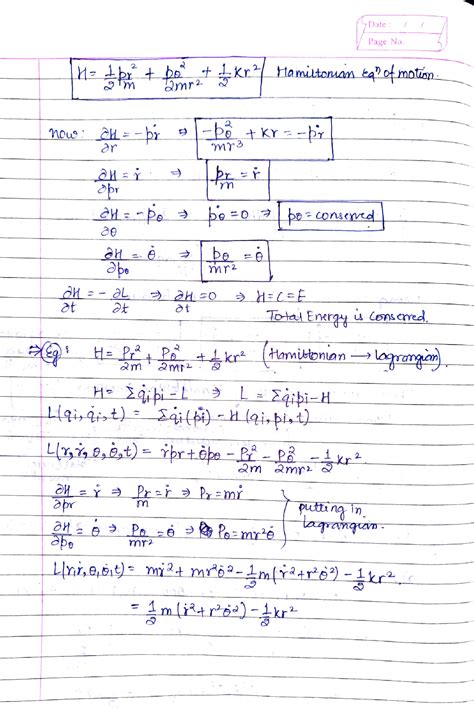 Date : / /
Page No.
H = 1/2 pr²/m + pθ²/2mr² + 1/2 Kr² Hamiltonian Eqⁿ of motion.
Now: ∂H/∂r = -ṗr ⇒ -pθ²/mr³ + Kr = -ṗr
∂H/∂pr = ṙ ⇒ pr/m = ṙ
∂H/∂θ = -ṗθ ⇒ ṗθ = 0 ⇒ pθ = conserved
∂H/∂pθ = θ̇ ⇒ pθ/mr² = θ̇
∂H/∂t = -∂L/∂t ⇒ ∂H/∂t = 0 ⇒ H = C = E
Total Energy is conserred.
⇒ Eg: H = Pr²/2m + Pθ²/2mr² + 1/2 kr² (Hamiltonian → lagrangian).
H = Σq̇ipi - L ⇒ L = Σq̇ipi - H
L(qi, q̇i, t) = Σq̇i(pi) - H(qi, pi, t)
L(r, ṙ, θ, θ̇, t) = ṙpr + θ̇pθ - Pr²/2m - Pθ²/2mr² - 1/2 kr²
∂H/∂pr = ṙ ⇒ Pr/m = ṙ ⇒ Pr = mṙ
∂H/∂pθ = θ̇ ⇒ Pθ/mr² = θ̇ ⇒ Pθ = mr²θ̇
putting in
lagrangian.
L(r, ṙ, θ, θ̇, t) = mṙ² + mr²θ̇² - 1/2 m(ṙ² + r²θ̇²) - 1/2 kr²
= 1/2 m(ṙ² + r²θ̇²) - 1/2 kr²